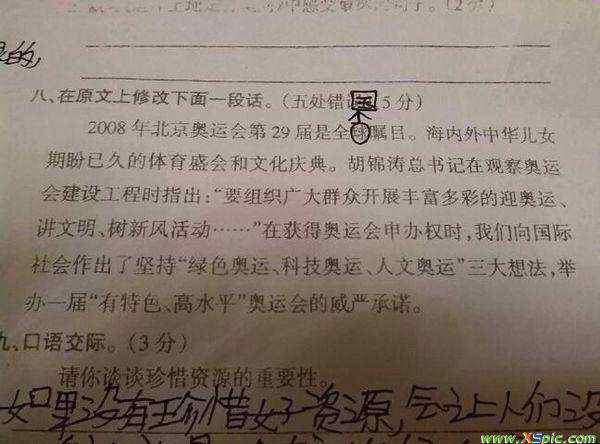 是的,
八、在原文上修改下面一段话。(五处错 5分)
国
2008年北京奥运会第29届是全球瞩目。海内外中华儿女
期盼已久的体育盛会和文化庆典。胡锦涛总书记在观察奥运
会建设工程时指出:“要组织广大群众开展丰富多彩的迎奥运、
讲文明、树新风活动……”在获得奥运会申办权时,我们向国际
社会作出了坚持“绿色奥运、科技奥运、人文奥运”三大想法,举
办一届“有特色、高水平”奥运会的威严承诺。
九、口语交际。(3分)
请你谈谈珍惜资源的重要性。
如果没有珍惜好资源,会让人们没
www.XSpic.com